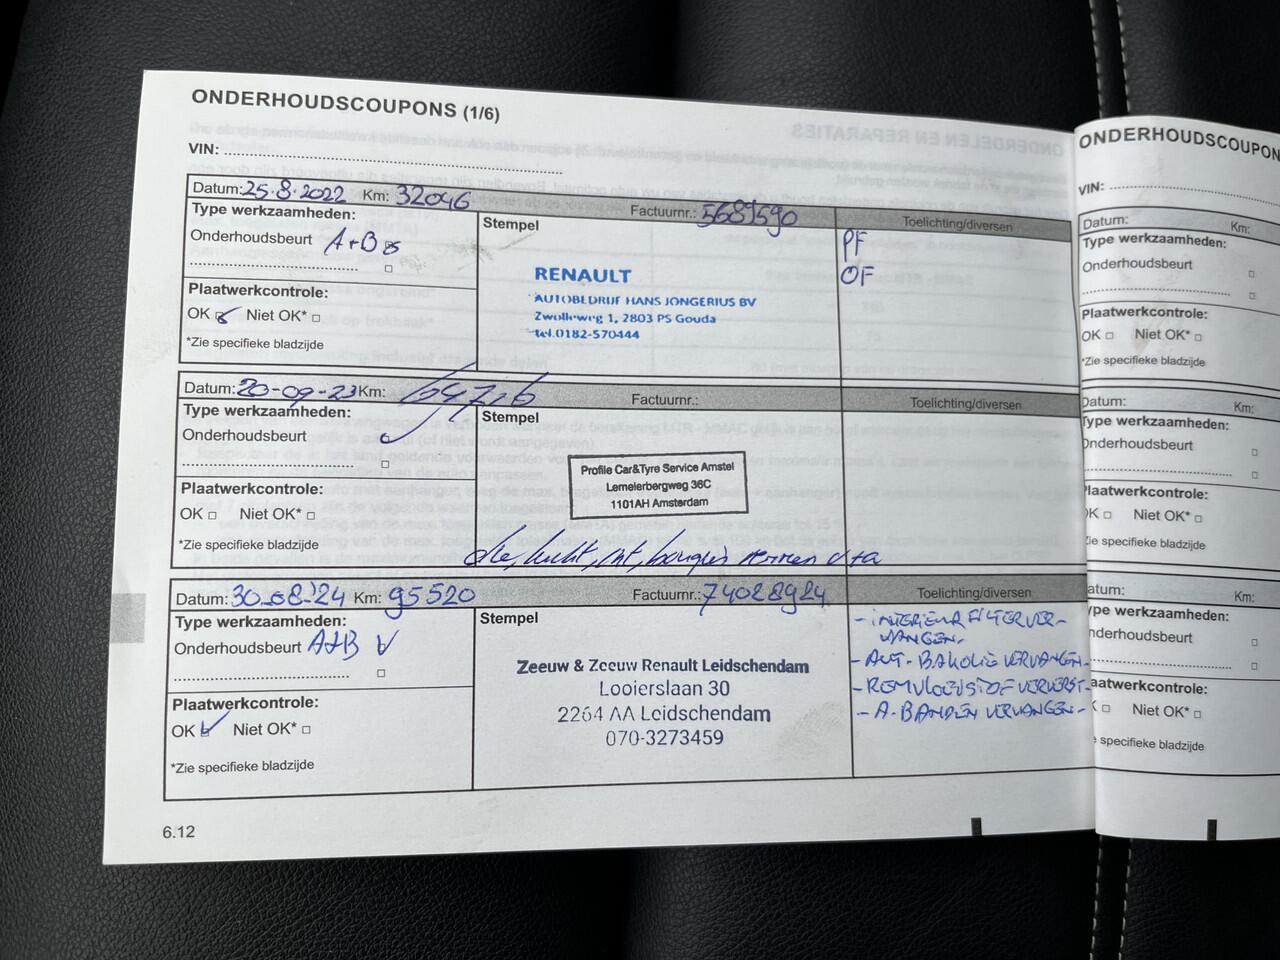 ONDERHOUDSCOUPONS (1/6)
VIN:
Datum: 25-8-2022 Km: 32046 Factuurnr.: 5689590 Toelichting/diversen
Type werkzaamheden:
Onderhoudsbeurt A+B
Plaatwerkcontrole:
OK Niet OK*
*Zie specifieke bladzijde
Stempel
RENAULT
AUTOBEDRIJF HANS JONGERIUS BV
Zwolleweg 1, 2803 PS Gouda
tel.0182-570444
PF
OF
Datum: 20-09-23 Km: Factuurnr.: Toelichting/diversen
Type werkzaamheden:
Onderhoudsbeurt
Plaatwerkcontrole:
OK Niet OK*
*Zie specifieke bladzijde
Stempel
Profile Car&Tyre Service Amstel
Lemelerbergweg 36C
1101AH Amsterdam
olie, lucht, int, bougies remmen v+a
Datum: 30-08-'24 Km: 95520 Factuurnr.: 74028924 Toelichting/diversen
Type werkzaamheden:
Onderhoudsbeurt A+B
Plaatwerkcontrole:
OK Niet OK*
*Zie specifieke bladzijde
Stempel
Zeeuw & Zeeuw Renault Leidschendam
Looierslaan 30
2264 AA Leidschendam
070-3273459
- INTERIEURFILTER VER-
VANGEN.
- AUT-BAKOLIE VERVANGEN-
- REMVLOEISTOF VERVERST-
- A-BANDEN VERVANGEN-
6.12
ONDERHOUDSCOUPON
VIN:
Datum: Km:
Type werkzaamheden:
Onderhoudsbeurt
Plaatwerkcontrole:
OK Niet OK*
*Zie specifieke bladzijde
Datum: Km:
Type werkzaamheden:
Onderhoudsbeurt
Plaatwerkcontrole:
OK Niet OK*
Zie specifieke bladzijde
atum: Km:
ype werkzaamheden:
nderhoudsbeurt
aatwerkcontrole:
K Niet OK*
specifieke bladzijde